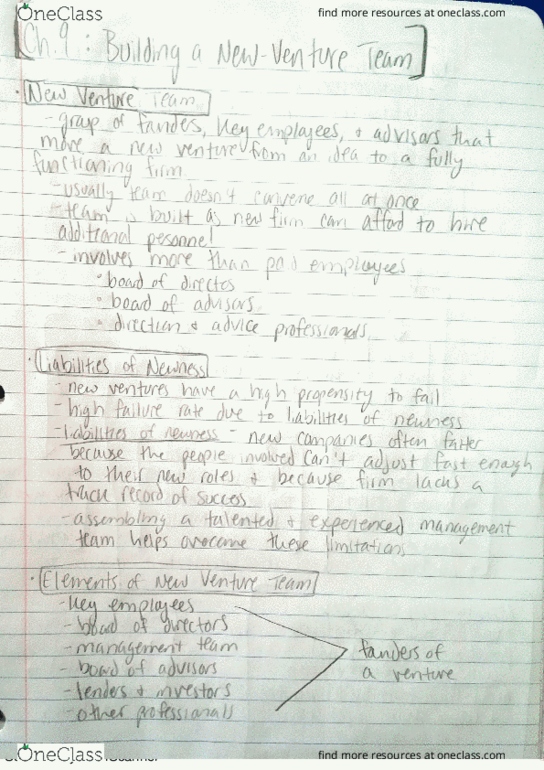 OneClass
find more resources at oneclass.com
Ch.9: Building a New-Venture Team
New Venture Team
- group of fanders, key employees, & advisors that
move a new venture from an idea to a fully
functioning firm
- usually team doesn't convene all at once
- team is built as new firm can afford to hire
additional pesonnel
- involves more than paid employees
° board of directos
° board of advisors
° direction & advice professionals
Liabilities of Newness
- new ventures have a high propensity to fail
- high failure rate due to liabilities of newness
- liabilities of newness - new companies often falter
because the people involved can't adjust fast enough
to their new roles & because firm lacks a
track record of success
- assembling a talented & experienced management
team helps overcome these limitations
Elements of New Venture Team
- key employees
- board of directors
- management team
- board of advisors
- lenders & investors
- other professionals
fanders of
a venture
OneClass
find more resources at oneclass.com